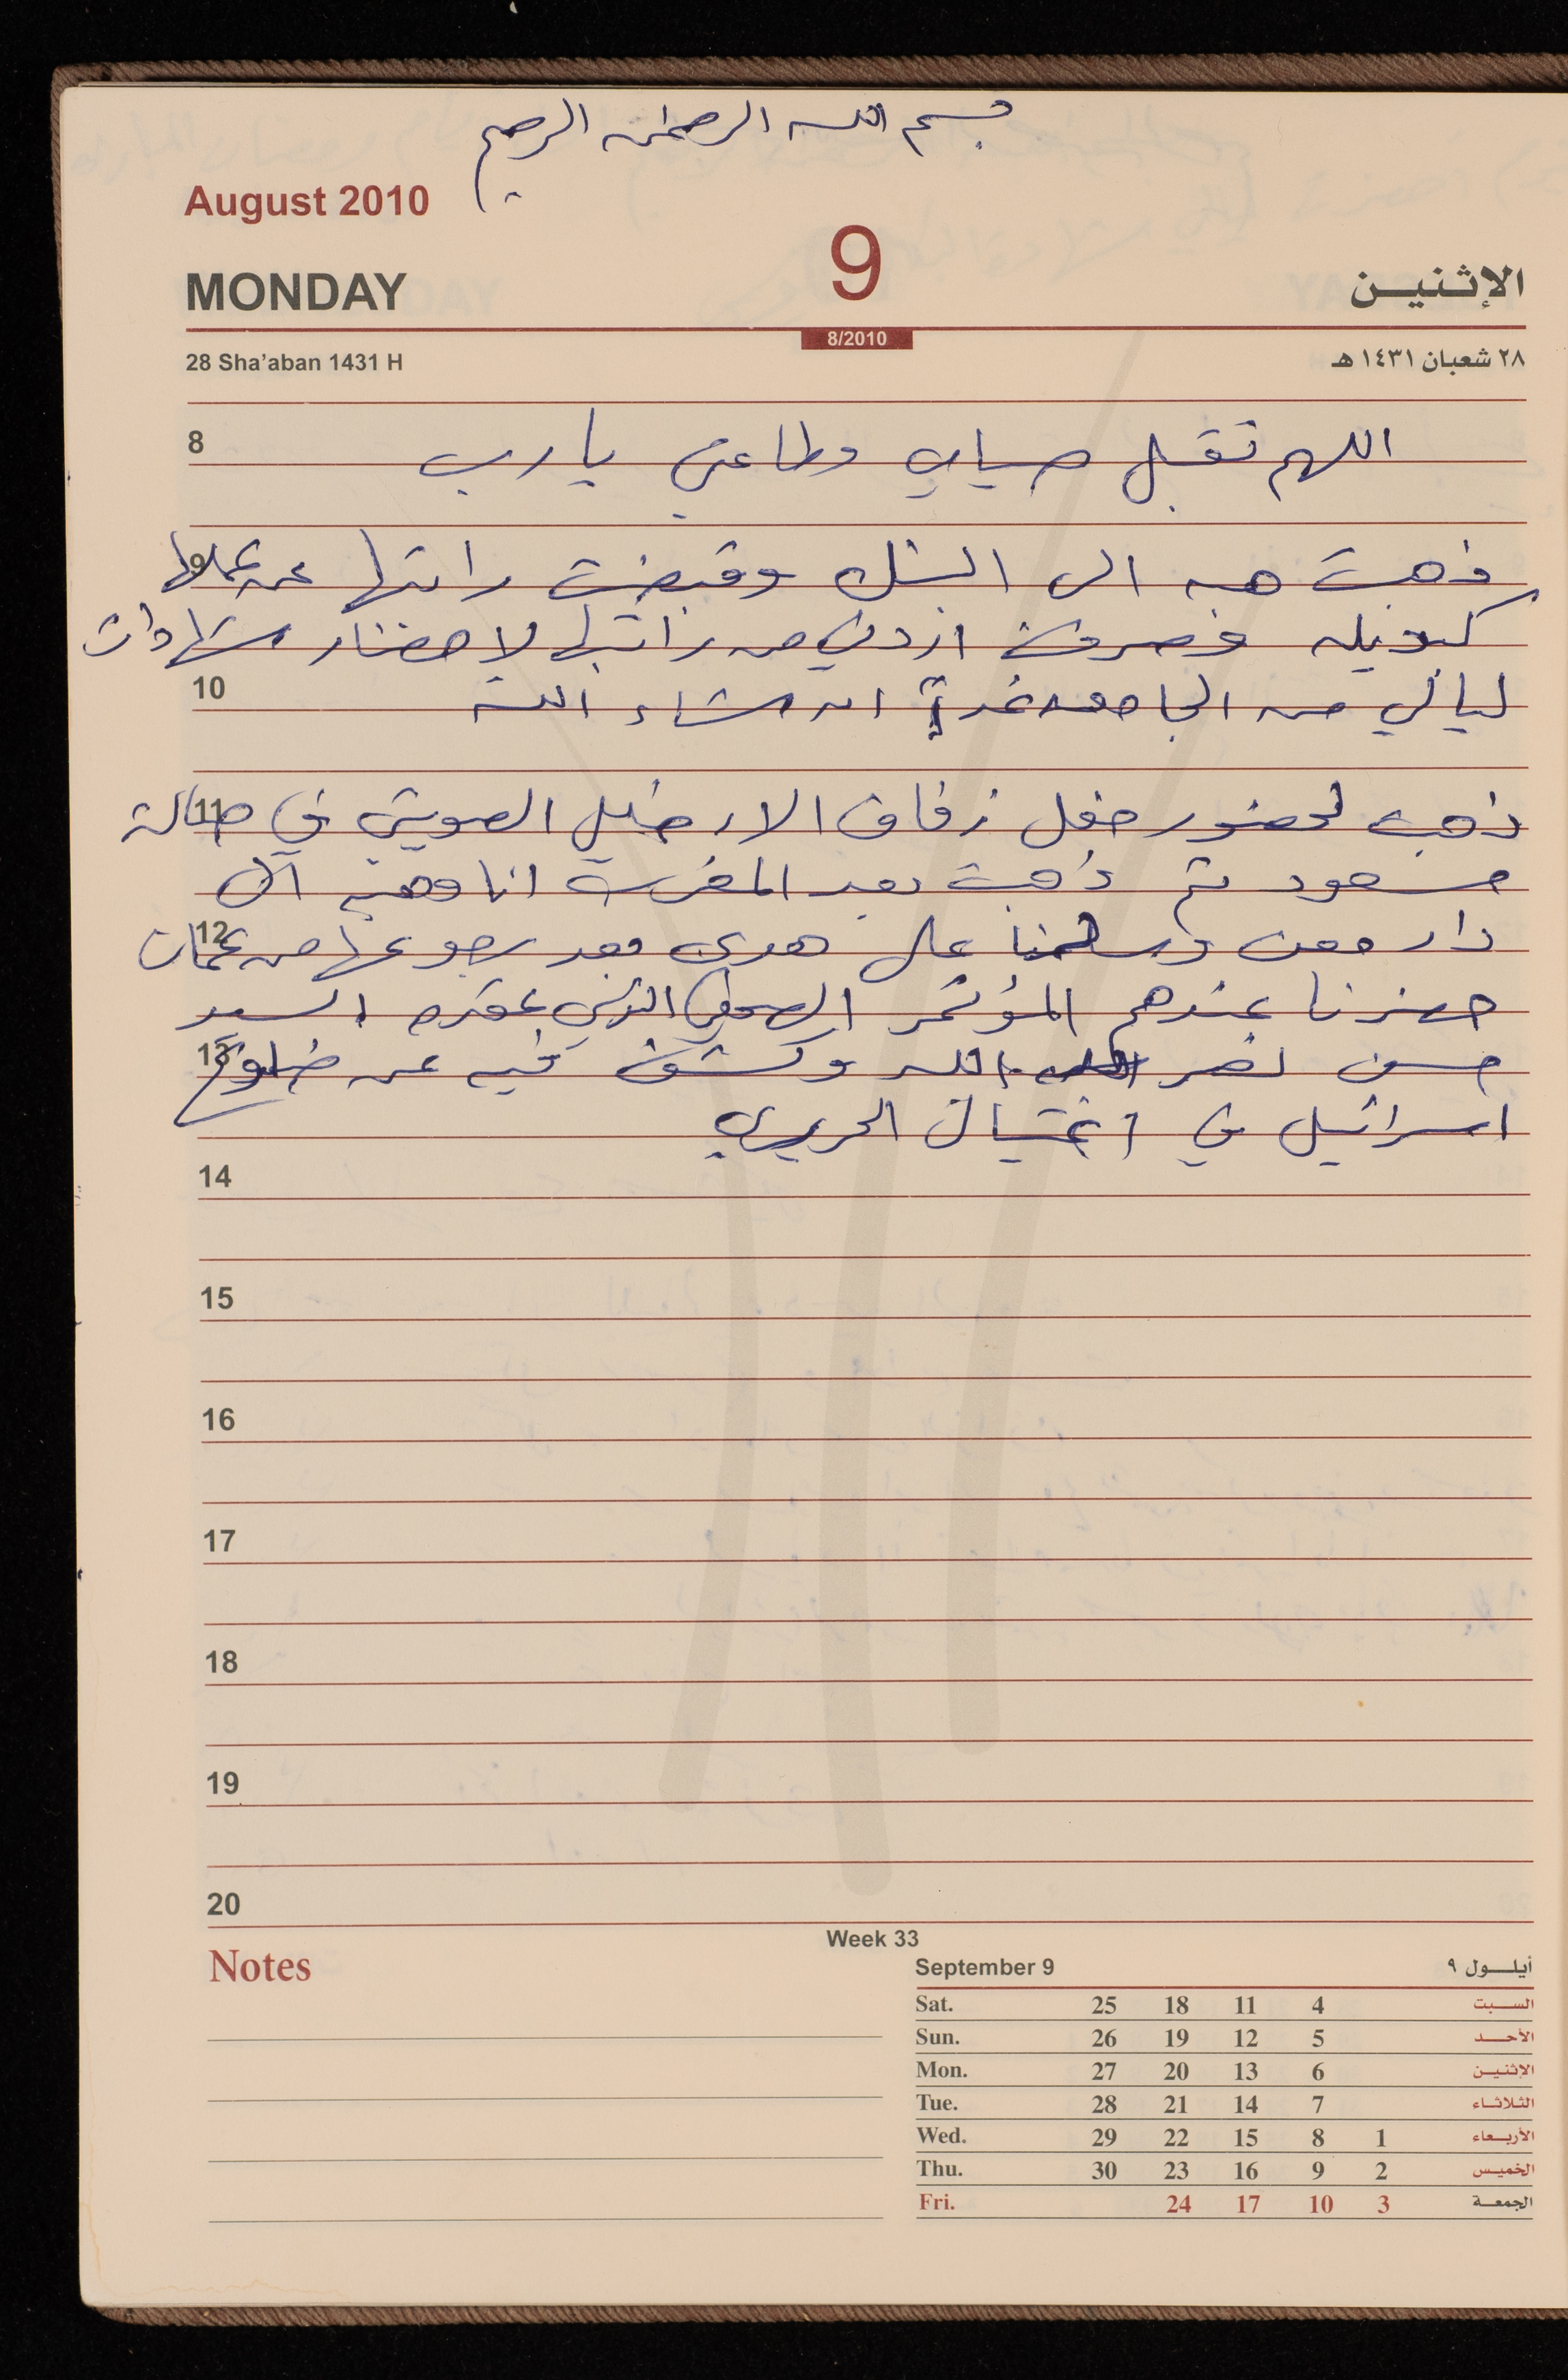 بسم الله الرحمن الرحيم
August 2010
MONDAY 9 الإثنين
8/2010
28 Sha'aban 1431 H ٢٨ شعبان ١٤٣١ هـ
8 اللهم تقبل صيامي وطاعتي يا رب
9 ذهبت هبه الى البنك وقبضت راتبها عن عملها
كبديله فصرفت اردني من راتبها لاحضار شهادات
10 ليالي من الجامعه غداً ان شاء الله
11 ذهبت لحضور حفل زفاف الار في صالة
مسعود ثم ذهبت بعد المغرب انا وهبه الى
12 دار معن وسلمنا على هدى بعد رجوعها من عمان
حضرنا عندهم المؤتمر الصحفي الذي عقده السيد
13 حسن نصر الله وكشف فيه عن ضلوع
اسرائيل في اغتيال الحريري
14
15
16
17
18
19
20
Notes
Week 33
September 9 أيلـول ٩
Sat. 25 18 11 4 السـبت
Sun. 26 19 12 5 الأحـد
Mon. 27 20 13 6 الإثنيـن
Tue. 28 21 14 7 الثلاثـاء
Wed. 29 22 15 8 1 الأربـعاء
Thu. 30 23 16 9 2 الخميـس
Fri. 24 17 10 3 الجمعـة